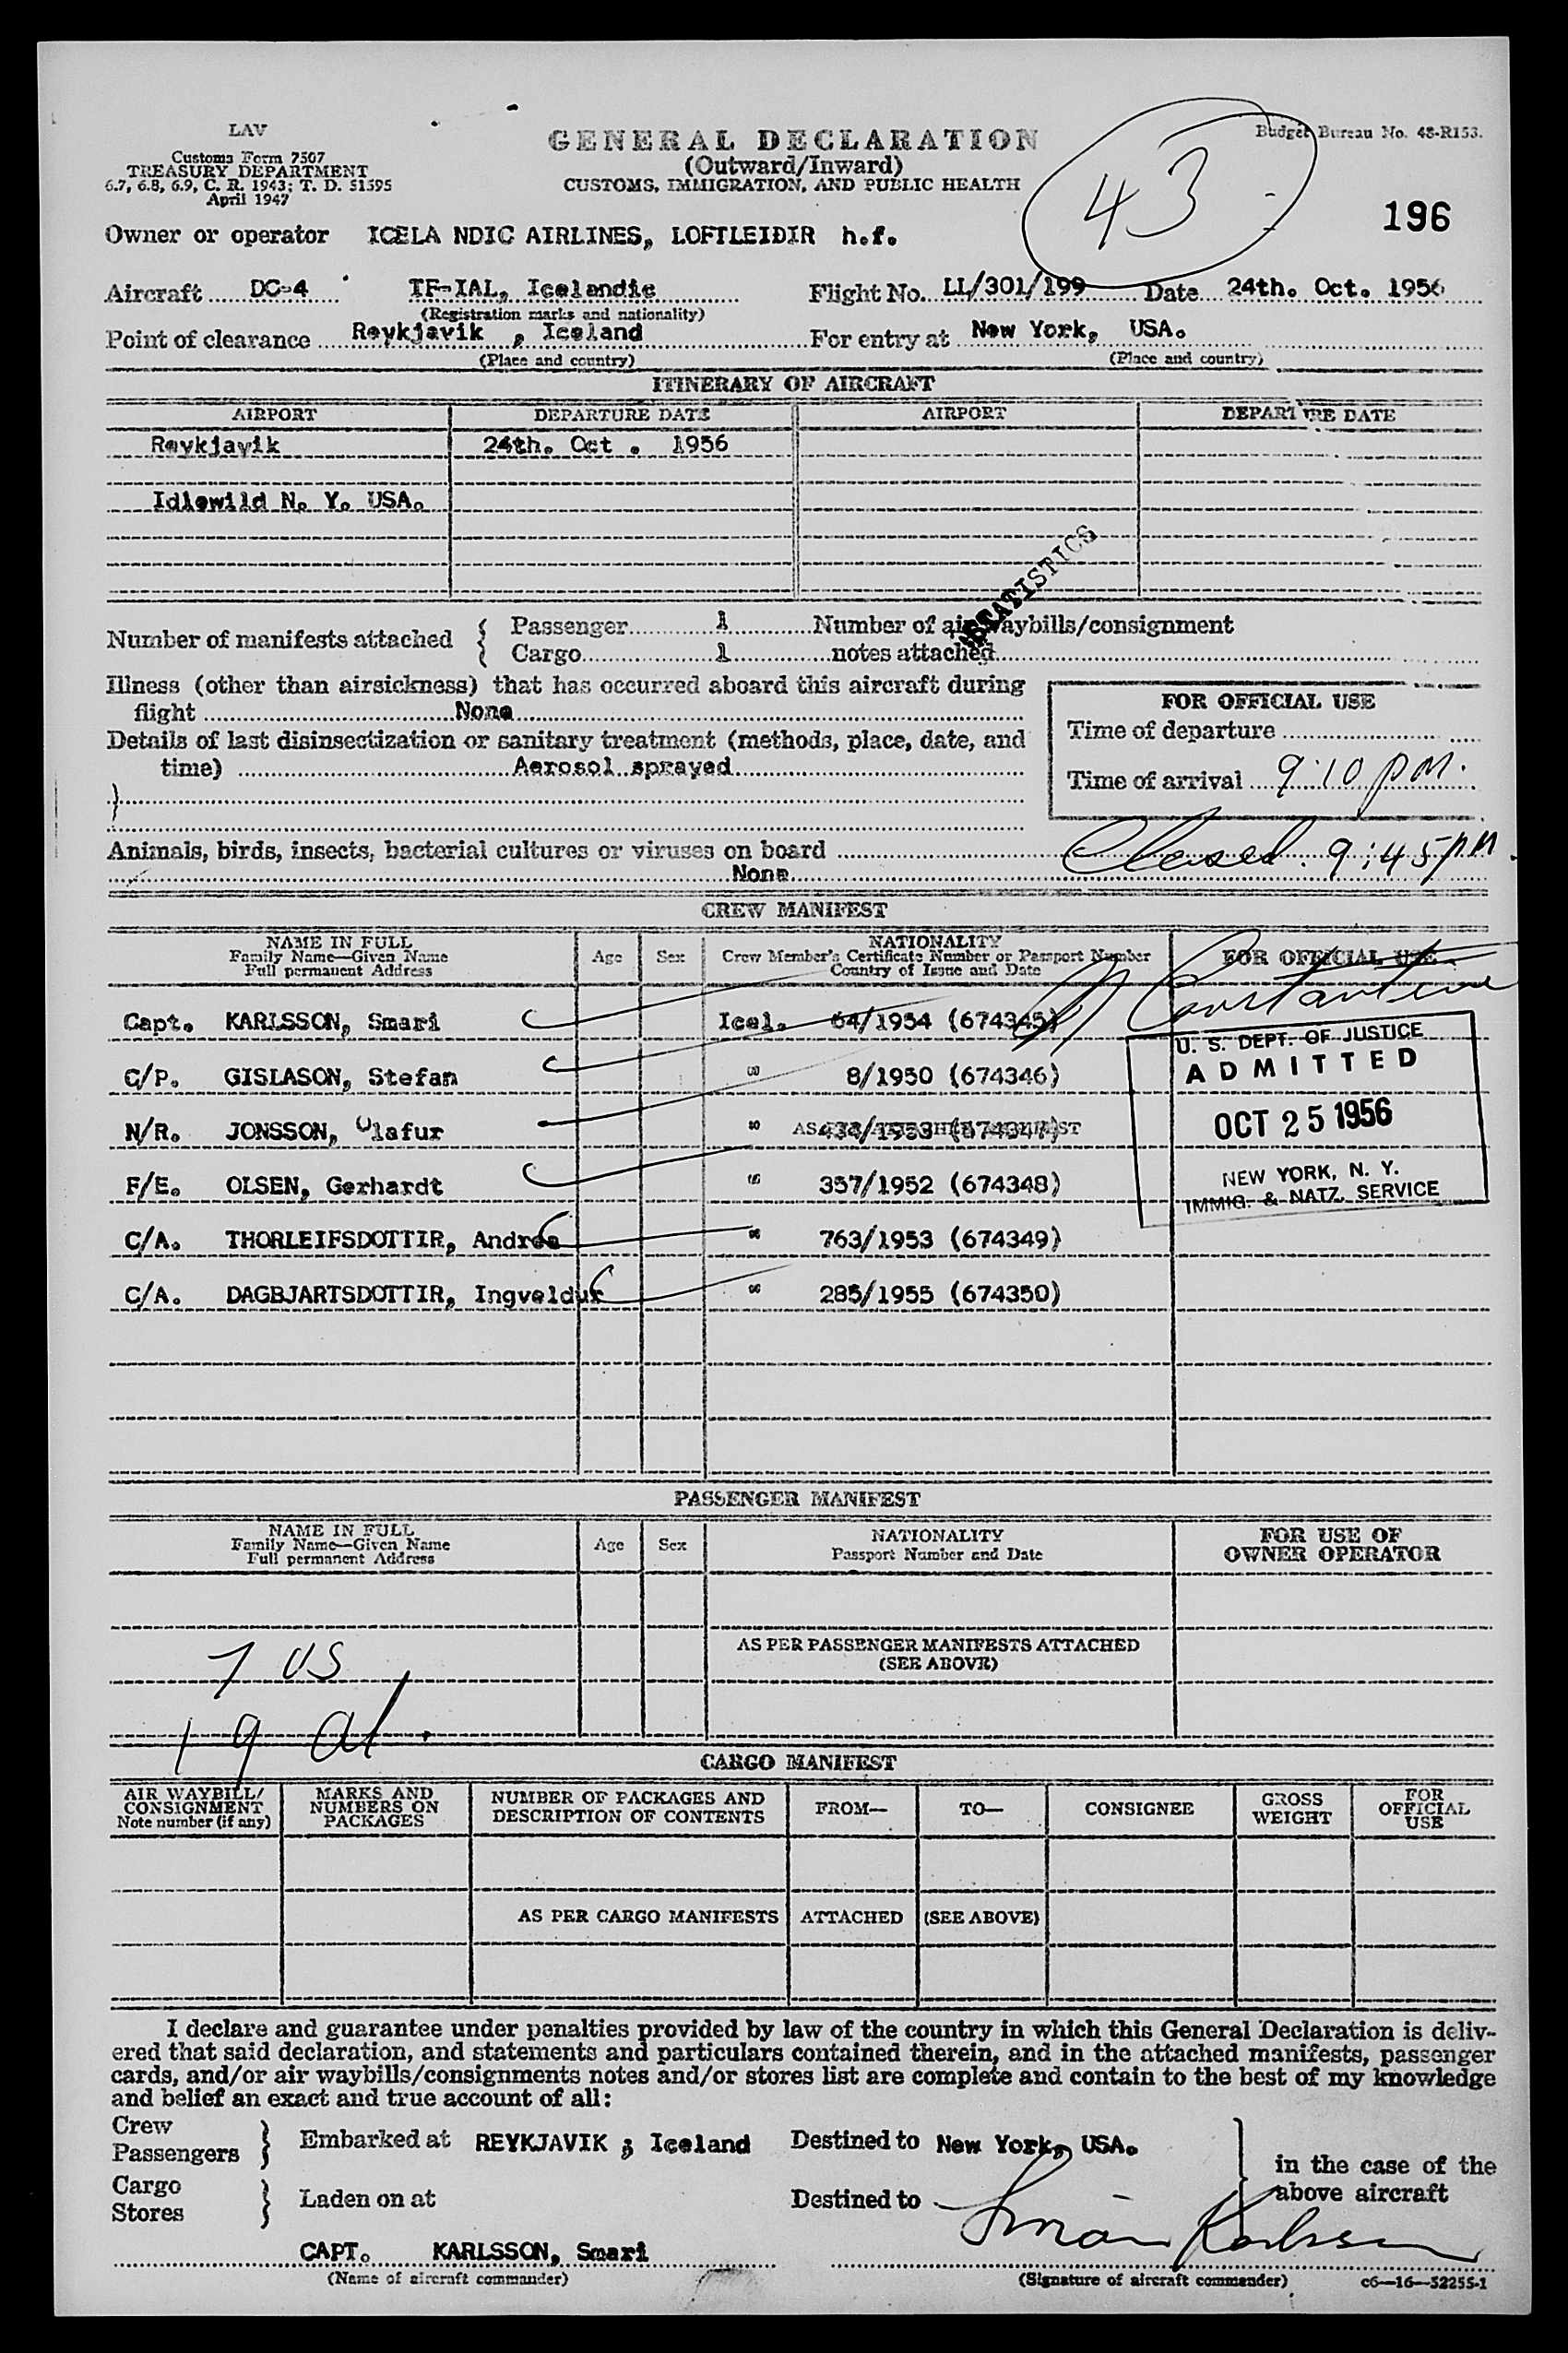 LAV
Customs Form 7507
TREASURY DEPARTMENT
6.7, 6.8, 6.9, C. R. 1943; T. D. 51595
April 1947
GENERAL DECLARATION
(Outward/Inward)
CUSTOMS, IMMIGRATION, AND PUBLIC HEALTH
Budget Bureau No. 48-R153.
43
196
Owner or operator ICELA NDIC AIRLINES, LOFTLEIÐIR h.f.
Aircraft DC-4 TF-IAL, Icelandic Flight No. LL/301/199 Date 24th. Oct. 1956
(Registration marks and nationality)
Point of clearance Reykjavik , Iceland For entry at New York, USA.
(Place and country) (Place and country)
ITINERARY OF AIRCRAFT
AIRPORT DEPARTURE DATE AIRPORT DEPARTURE DATE
Reykjavik 24th. Oct . 1956
Idlewild N. Y. USA.
STATISTICS
Number of manifests attached { Passenger 1 Number of air waybills/consignment
Cargo 1 notes attached
Illness (other than airsickness) that has occurred aboard this aircraft during
flight None
Details of last disinsectization or sanitary treatment (methods, place, date, and
time) Aerosol sprayed
FOR OFFICIAL USE
Time of departure
Time of arrival 9:10 pm.
Animals, birds, insects, bacterial cultures or viruses on board
None
Closed. 9:45 pm.
CREW MANIFEST
NAME IN FULL Age Sex NATIONALITY FOR OFFICIAL USE
Family Name—Given Name Crew Member's Certificate Number or Passport Number
Full permanent Address Country of Issue and Date
Constantine
Capt. KARLSSON, Smari Icel. 64/1954 (674345)
C/P. GISLASON, Stefan " 8/1950 (674346)
N/R. JONSSON, Olafur " 434/1953 (674347)
F/E. OLSEN, Gerhardt " 357/1952 (674348)
C/A. THORLEIFSDOTTIR, Andrea " 763/1953 (674349)
C/A. DAGBJARTSDOTTIR, Ingveldur " 285/1955 (674350)
U. S. DEPT. OF JUSTICE
ADMITTED
OCT 25 1956
NEW YORK, N. Y.
IMMIG. & NATZ. SERVICE
PASSENGER MANIFEST
NAME IN FULL Age Sex NATIONALITY FOR USE OF
Family Name—Given Name Passport Number and Date OWNER OPERATOR
Full permanent Address
AS PER PASSENGER MANIFESTS ATTACHED
(SEE ABOVE)
7 US
19 al.
CARGO MANIFEST
AIR WAYBILL/ MARKS AND NUMBER OF PACKAGES AND FROM— TO— CONSIGNEE GROSS FOR
CONSIGNMENT NUMBERS ON DESCRIPTION OF CONTENTS WEIGHT OFFICIAL
Note number (if any) PACKAGES USE
AS PER CARGO MANIFESTS ATTACHED (SEE ABOVE)
I declare and guarantee under penalties provided by law of the country in which this General Declaration is deliv-
ered that said declaration, and statements and particulars contained therein, and in the attached manifests, passenger
cards, and/or air waybills/consignments notes and/or stores list are complete and contain to the best of my knowledge
and belief an exact and true account of all:
Crew
Passengers } Embarked at REYKJAVIK ; Iceland Destined to New York, USA.
Cargo
Stores } Laden on at Destined to
in the case of the
above aircraft
Smári Karlsson
CAPT. KARLSSON, Smari
(Name of aircraft commander) (Signature of aircraft commander) c6—16—52255-1